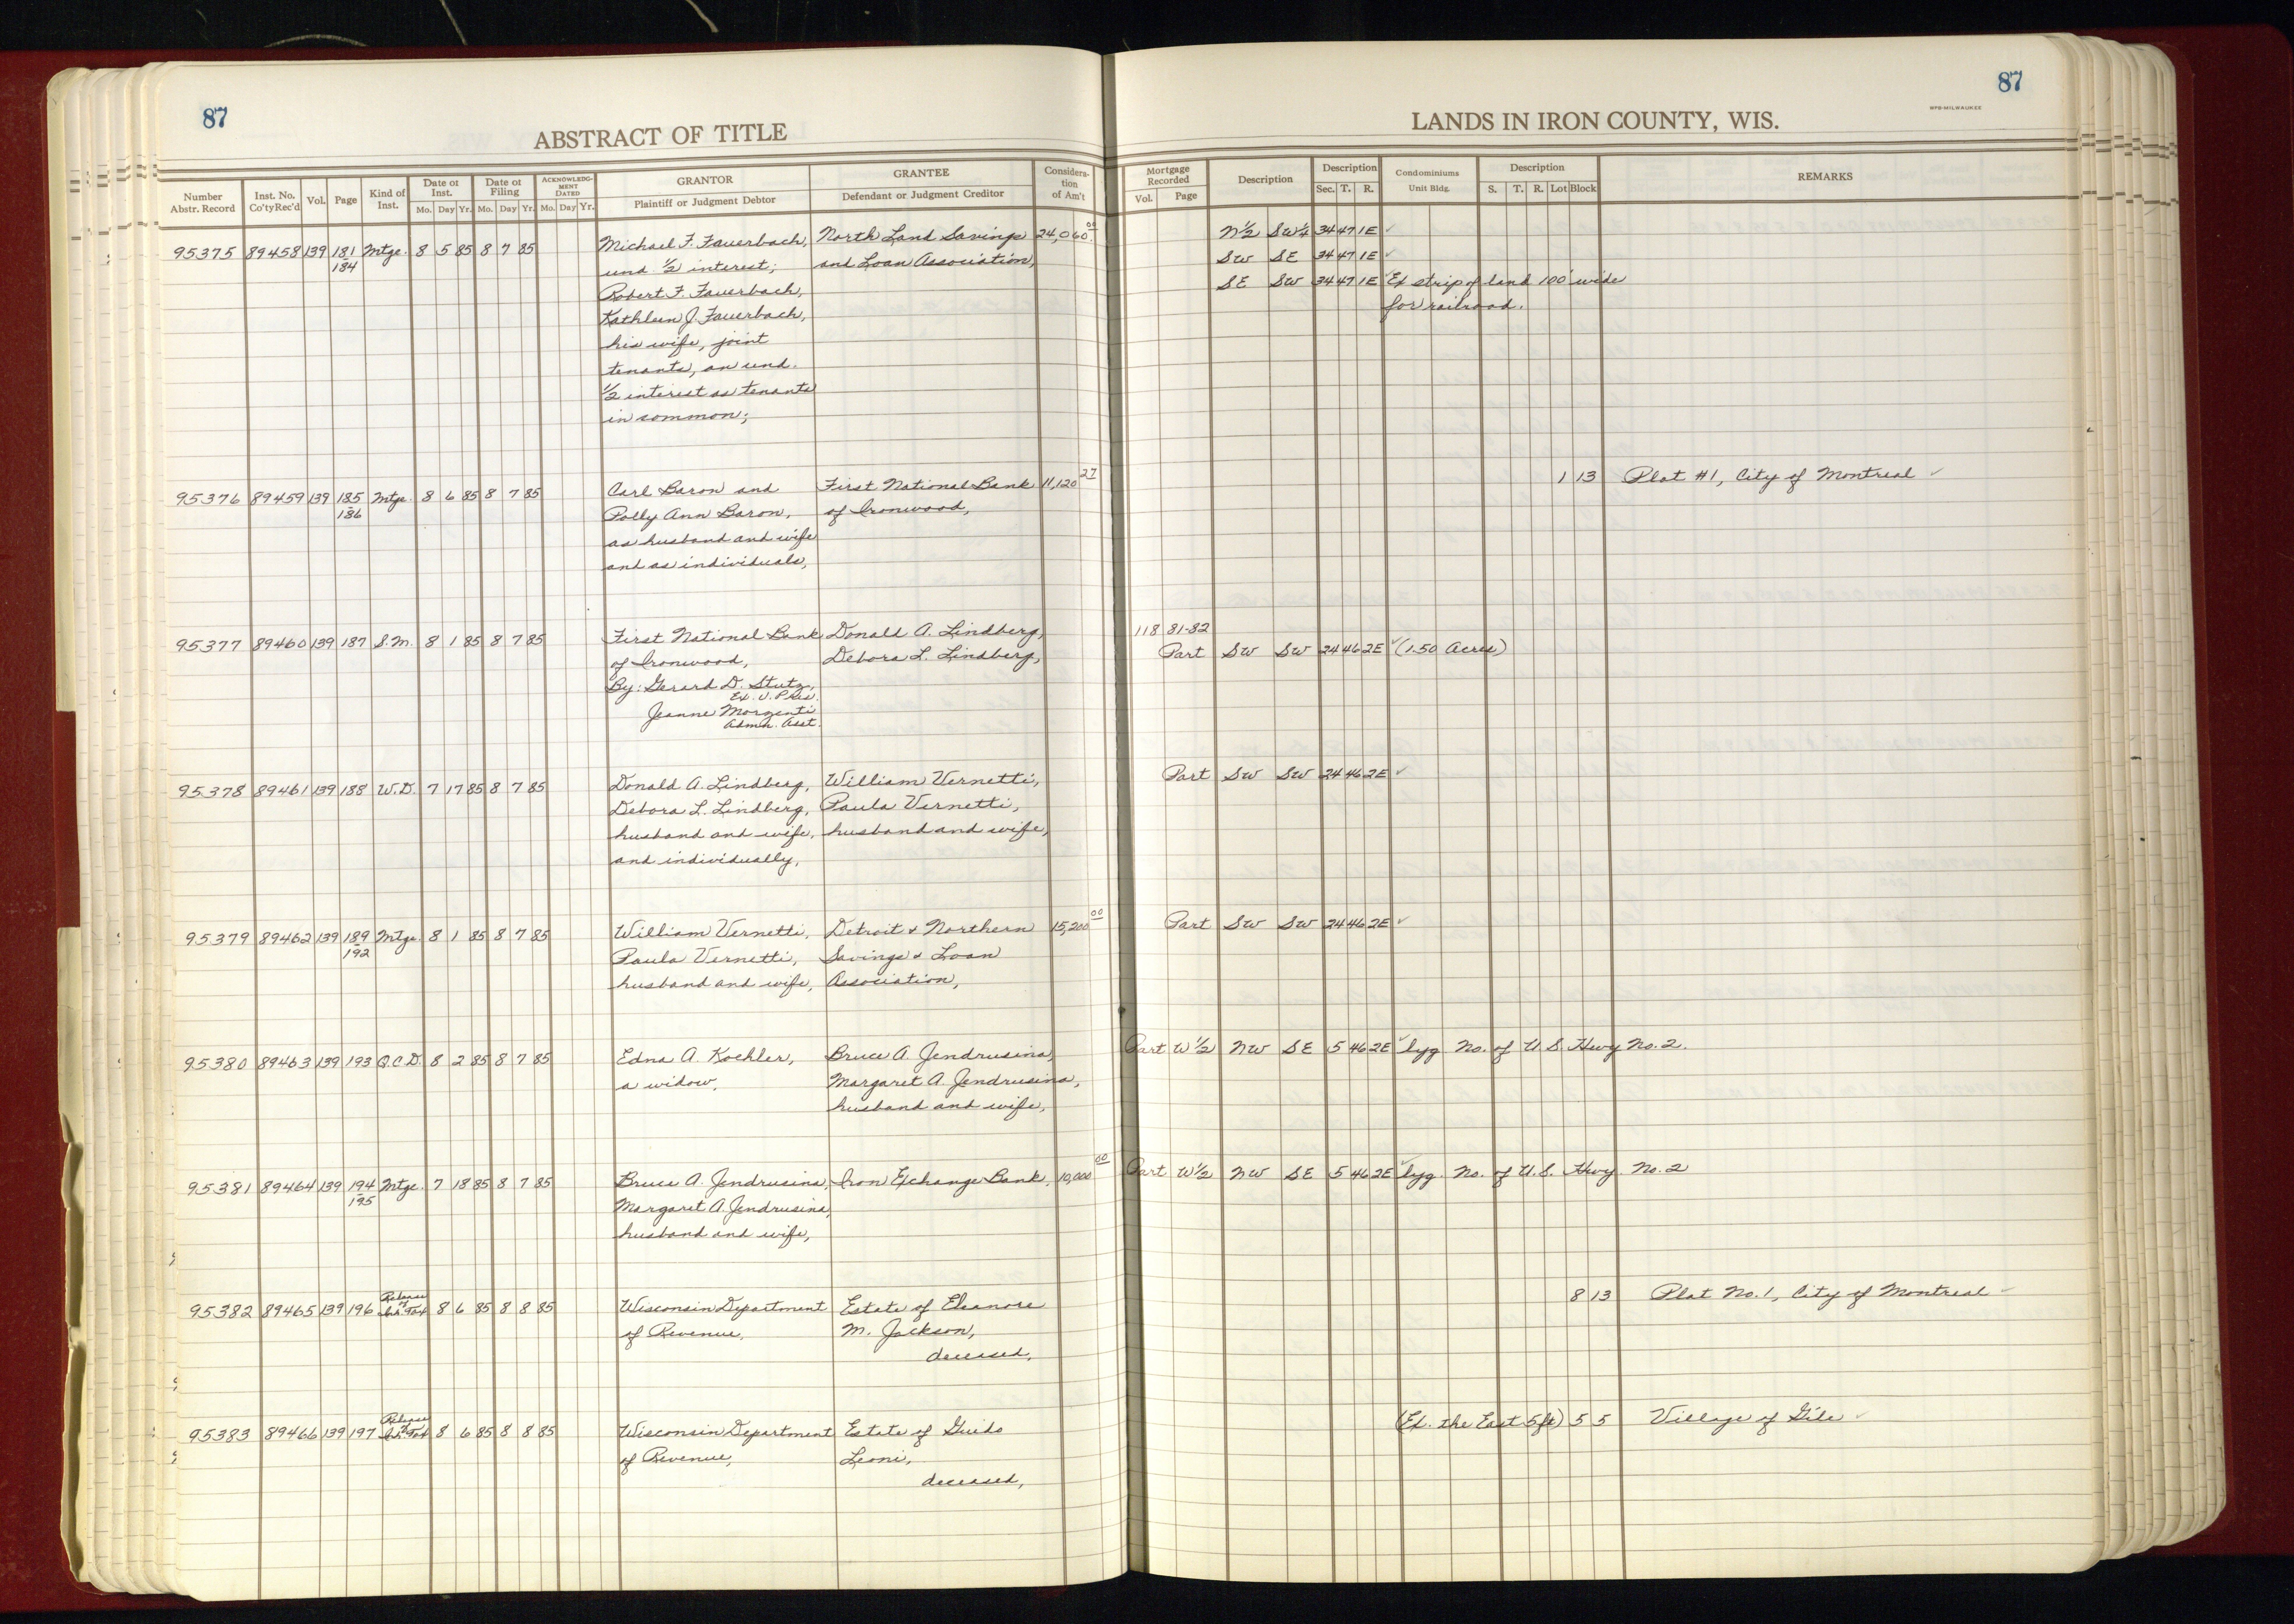 87
ABSTRACT OF TITLE
87
LANDS IN IRON COUNTY, WIS.
WPB-MILWAUKEE
Number Abstr. Record | Inst. No. Co'ty Rec'd | Vol. | Page | Kind of Inst. | Date of Inst. Mo. Day Yr. | Date of Filing Mo. Day Yr. | ACKNOWLEDGMENT DATED Mo. Day Yr. | GRANTOR Plaintiff or Judgment Debtor | GRANTEE Defendant or Judgment Creditor | Consideration of Am't | Mortgage Recorded Vol. Page | Description | Description Sec. T. R. | Condominiums Unit Bldg. | Description S. T. R. Lot Block | REMARKS
95375 89458 139 181 Mtge. 8 5 85 8 7 85 Michael F. Fauerbach, North Land Savings 24,060.00 N½ SW¼ 34 47 1E ✓
184 und. ½ interest; and Loan Association, SW SE 34 47 1E ✓
Robert F. Fauerbach, SE SW 34 47 1E ✓ Ex strip of land 100' wide
Kathleen J. Fauerbach, for railroad.
his wife, joint
tenants, an und.
½ interest as tenants
in common;
95376 89459 139 185 Mtge. 8 6 85 8 7 85 Carl Baron and First National Bank 11,120 27 1 13 Plat #1, City of Montreal ✓
186 Polly Ann Baron, of Ironwood,
as husband and wife
and as individuals,
95377 89460 139 187 S.M. 8 1 85 8 7 85 First National Bank Donald A. Lindberg, 118 81-82
of Ironwood, Debora L. Lindberg, Part SW SW 24 46 2E ✓ (1.50 Acres)
By: Gerard D. Stutz,
Ex. V. Pres.
Jeanne Morzenti
Admn. Asst.
95378 89461 139 188 W.D. 7 17 85 8 7 85 Donald A. Lindberg, William Vernetti, Part SW SW 24 46 2E ✓
Debora L. Lindberg, Paula Vernetti,
husband and wife, husband and wife,
and individually,
95379 89462 139 189 Mtge. 8 1 85 8 7 85 William Vernetti, Detroit & Northern 15,200 00 Part SW SW 24 46 2E ✓
192 Paula Vernetti, Savings & Loan
husband and wife, Association,
95380 89463 139 193 Q.C.D. 8 2 85 8 7 85 Edna A. Koehler, Bruce A. Jendrusina, Part W½ NW SE 5 46 2E ✓ lyg No. of U.S. Hwy No. 2.
a widow, Margaret A. Jendrusina,
husband and wife,
95381 89464 139 194 Mtge. 7 18 85 8 7 85 Bruce A. Jendrusina, Iron Exchange Bank, 10,000 00 Part W½ NW SE 5 46 2E ✓ lyg. No. of U.S. Hwy No. 2
195 Margaret A. Jendrusina,
husband and wife,
95382 89465 139 196 Release of Inh. Tax 8 6 85 8 8 85 Wisconsin Department Estate of Eleanore 8 13 Plat No. 1, City of Montreal ✓
of Revenue, M. Jackson,
deceased,
95383 89466 139 197 Release of Inh. Tax 8 6 85 8 8 85 Wisconsin Department Estate of Guido (Ex. the East 5 ft) 5 5 Village of Gile ✓
of Revenue, Leoni,
deceased,